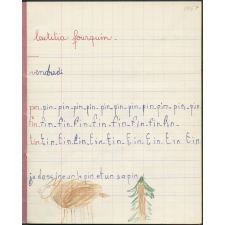 laetitia fourquin.
vendredi
pin. pin. pin. pin. pin. pin. pin. pin. pin.
fin. fin. fin. fin. fin. fin. fin. fin.
tin. tin. tin. tin. tin. tin. tin. tin. tin
je dessine un lapin et un sapin